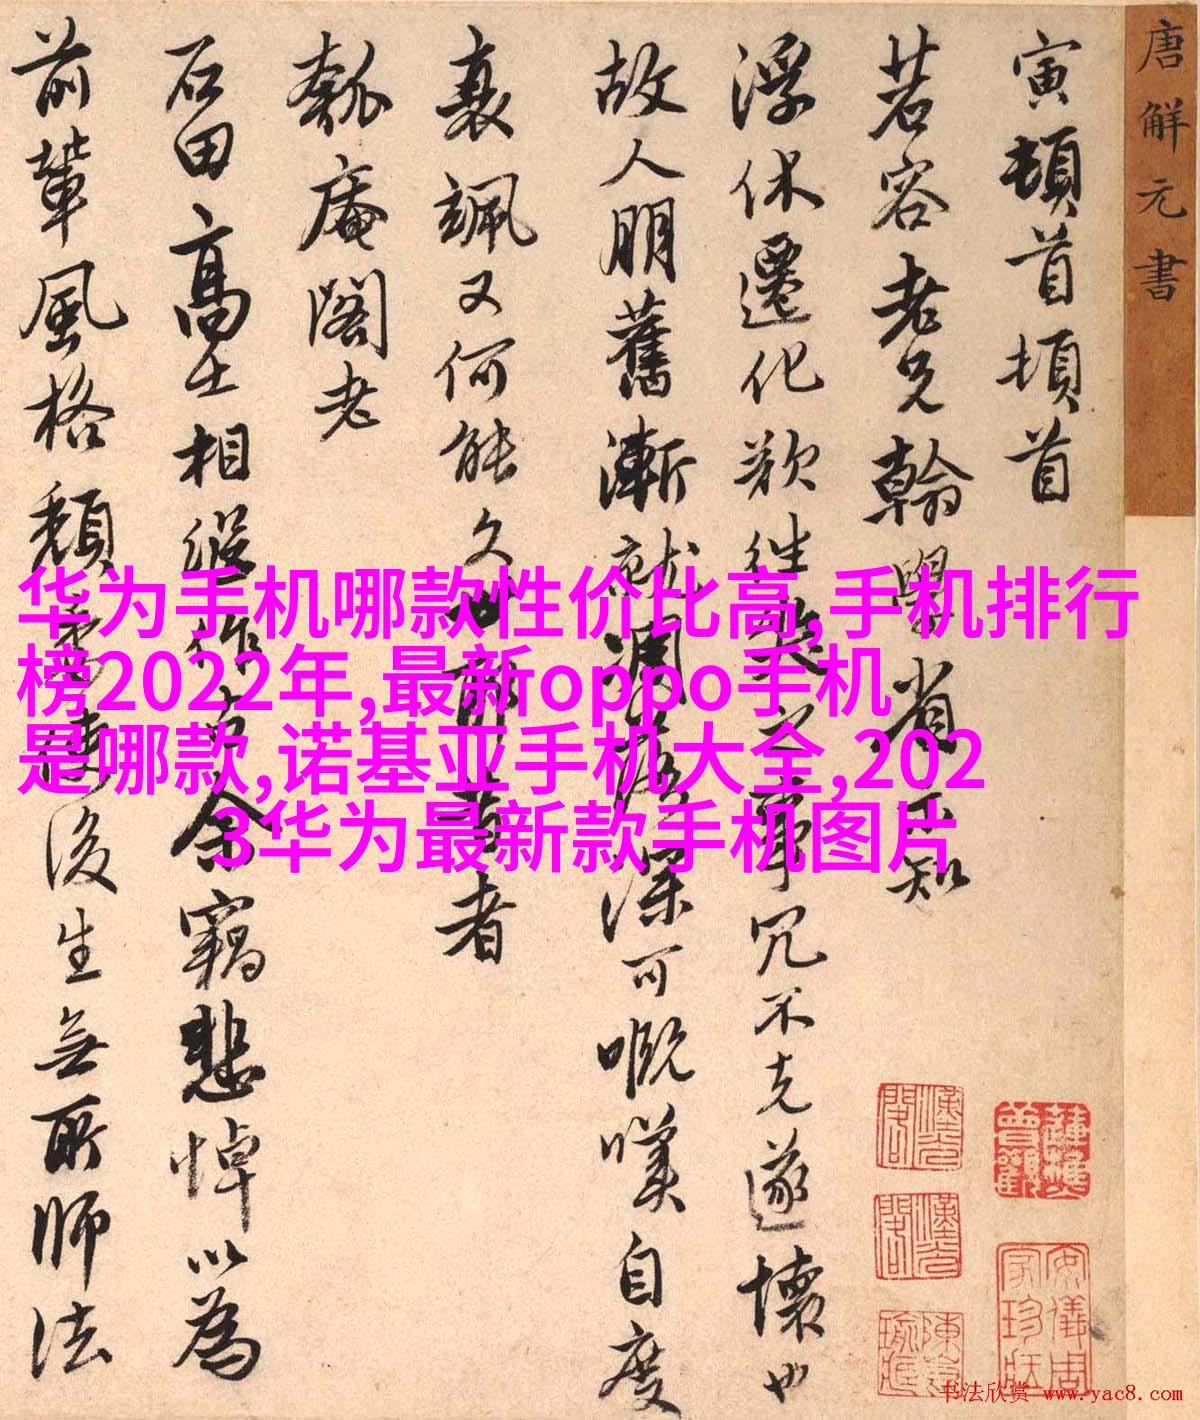 唐解元書
寅頓首頓首
若容老兄翰學省知
浮休遷化欲往之事冗不克遂懷也
故人朋舊漸就凋落深可嘅嘆自度
衰颯又何能久世耶昔者
瓠庵閣老
石田高士相繼作古余竊悲悼以為
前輩風格頹後生無所師法
华为手机哪款性价比高,手机排行
榜2022年,最新oppo手机
是哪款,诺基亚手机大全,202
3华为最新款手机图片
书法欣赏 www.yac8.com